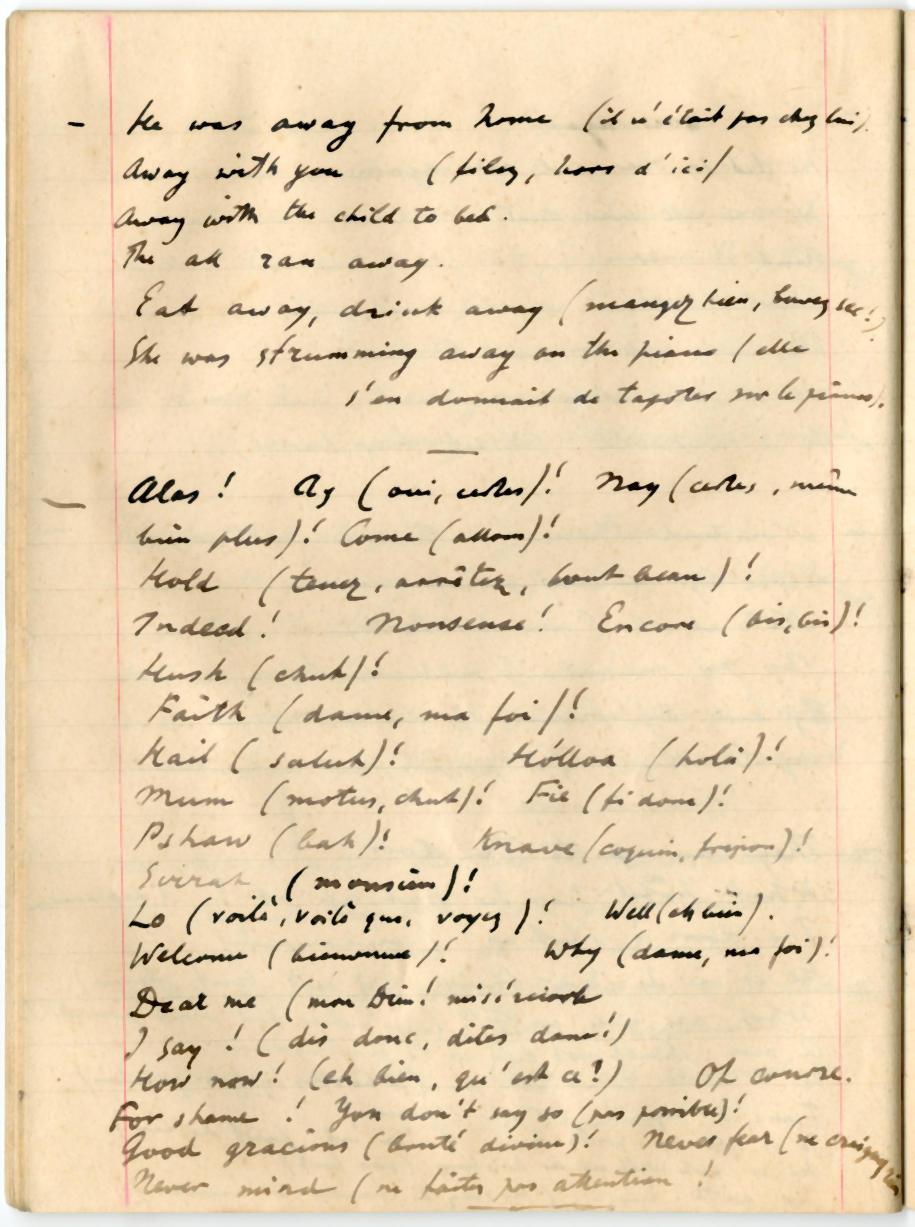 - He was away from home (il n'était pas chez lui).
Away with you (filez, hors d'ici)
Away with the child to bed.
The all ran away.
Eat away, drink away (mangez bien, buvez sec!)
She was strumming away on the piano (elle
s'en donnait de tapoter sur le piano).
- Alas! Ay (oui, certes)! Nay (certes, même
bien plus)! Come (allons)!
Hold (tenez, arrêtez, bout beau)!
Indeed! Nonsense! Encore (bis, bis)!
Hush (chut)!
Faith (dame, ma foi)!
Hail (salut)! Hólloa (holà)!
Mum (motus, chut)! Fie (fi donc)!
Pshaw (bah)! Knave (coquin, fripon)!
Sirrah (monsieur)!
Lo (voilà, voilà que, voyez)! Well (eh bien).
Welcome (bienvenue)! Why (dame, ma foi)!
Dear me (mon Dieu! miséricorde
I say! (dis donc, dites donc!)
How now! (eh bien, qu'est ce?) Of course.
For shame! You don't say so (pas possible)!
Good gracious (bonté divine)! Never fear (ne craignez rien
Never mind (ne faites pas attention!